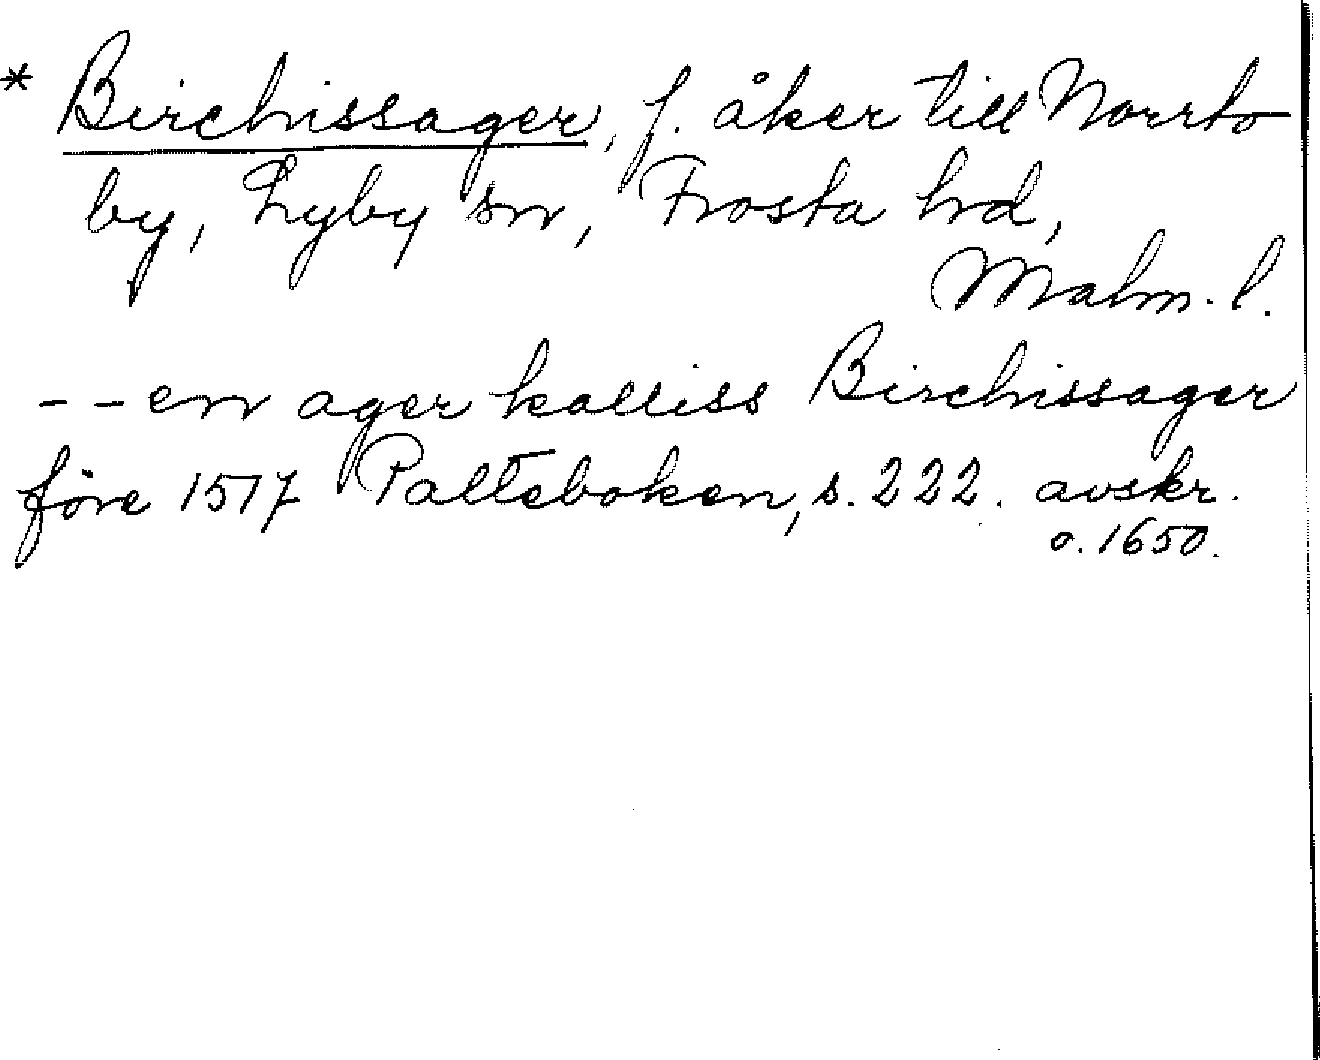 * Birchissager, f. åker till Norrto
by, Lyby sn, Frosta hd,
Malm. l.
- - en ager kalliss Birchissager
före 1517 Palteboken, s. 222. avskr.
o. 1650.